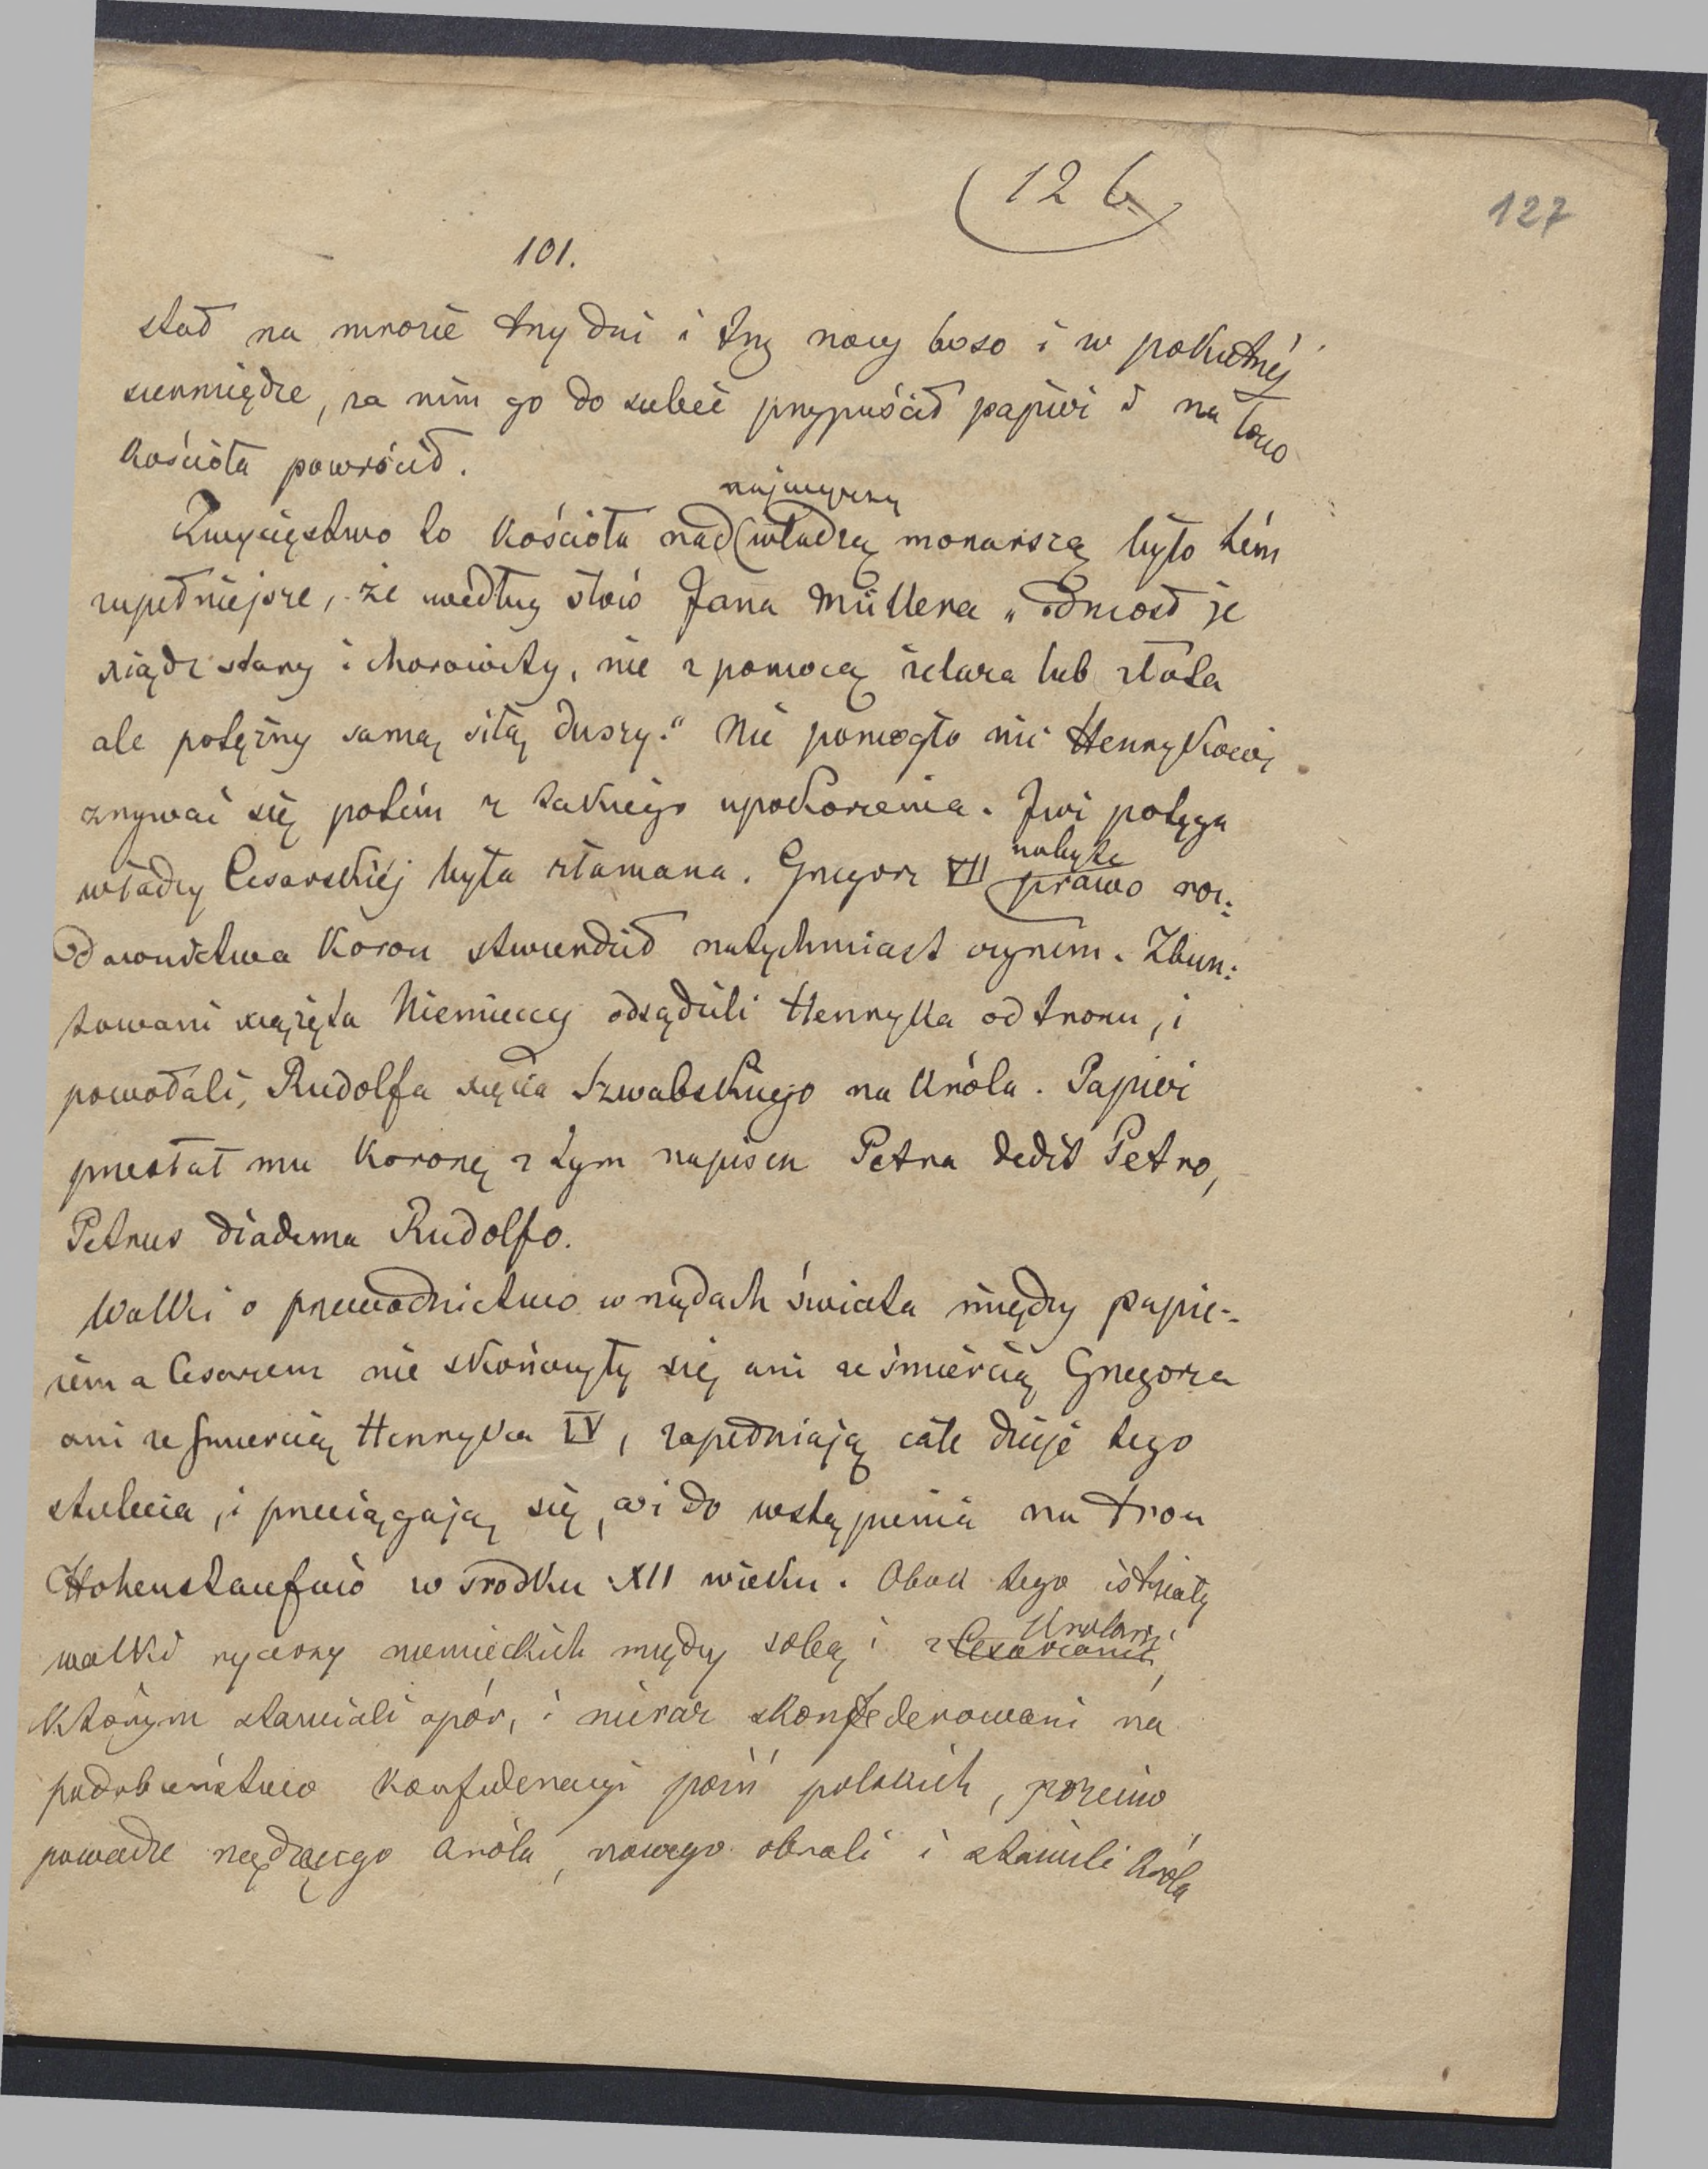 126
127
101.
stał na mrozie trzy dni i trzy nocy boso i w pokutnéj
siermiędze, za nim go do siebie przypuścił papież i na łono
kościoła powrócił.
najwyższą
Zwycięstwo to kościoła nad władzą monarszą było tém
zupełniejsze, że według słów Jana Müllera „odniosł je
xiądz stary i chorowity, nie z pomocą żelaza lub złota
ale potężny samą siłą duszy." Nie pomogło nic Henrykowi
zrywać się potém z takiego upokorzenia. Już potęga
władzy Cesarskiéj była złamana. Grzegorz VII nabyte prawo roz:
dawnictwa koron stwierdził natychmiast czynem. Zbun:
towani xiążęta Niemieccy odsądzili Henryka od tronu, i
powołali, Rudolfa xięcia Szwabskiego na króla. Papież
przesłał mu koronę z tym napisem Petra dedit Petro,
Petrus diadema Rudolfo.
Walki o przewodnictwo w rządach świata między papie-
żem a Cesarzem nie skończyły się, ani ze śmiercią Grzegorza
ani ze śmiercią Henryka IV, zapełniają całe dzieje tego
stulecia, i przeciągają się, aż do wstąpienia na tron
Hohenstaufów w środku XII wieku. Obok tego istniały
Królami
walki rycerzy niemieckich między sobą i z Cesarzami,
którym stawiali opór, i nieraz skonfederowani na
podobieństwo konfederacyi póź polskich, przeciw
powadze rządzącego króla, nowego obrali i stawili króla